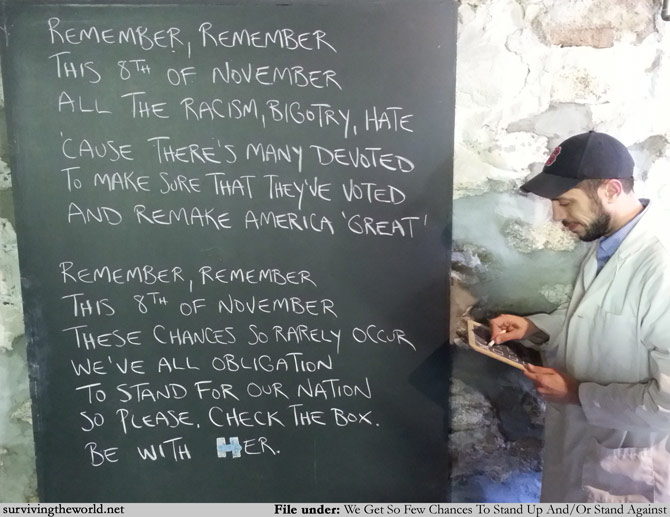 REMEMBER, REMEMBER
THIS 8TH OF NOVEMBER
ALL THE RACISM, BIGOTRY, HATE
'CAUSE THERE'S MANY DEVOTED
TO MAKE SURE THAT THEY'VE VOTED
AND REMAKE AMERICA 'GREAT'
REMEMBER, REMEMBER
THIS 8TH OF NOVEMBER
THESE CHANCES SO RARELY OCCUR
WE'VE ALL OBLIGATION
TO STAND FOR OUR NATION
SO PLEASE. CHECK THE BOX.
BE WITH HER.
survivingtheworld.net
File under: We Get So Few Chances To Stand Up And/Or Stand Against